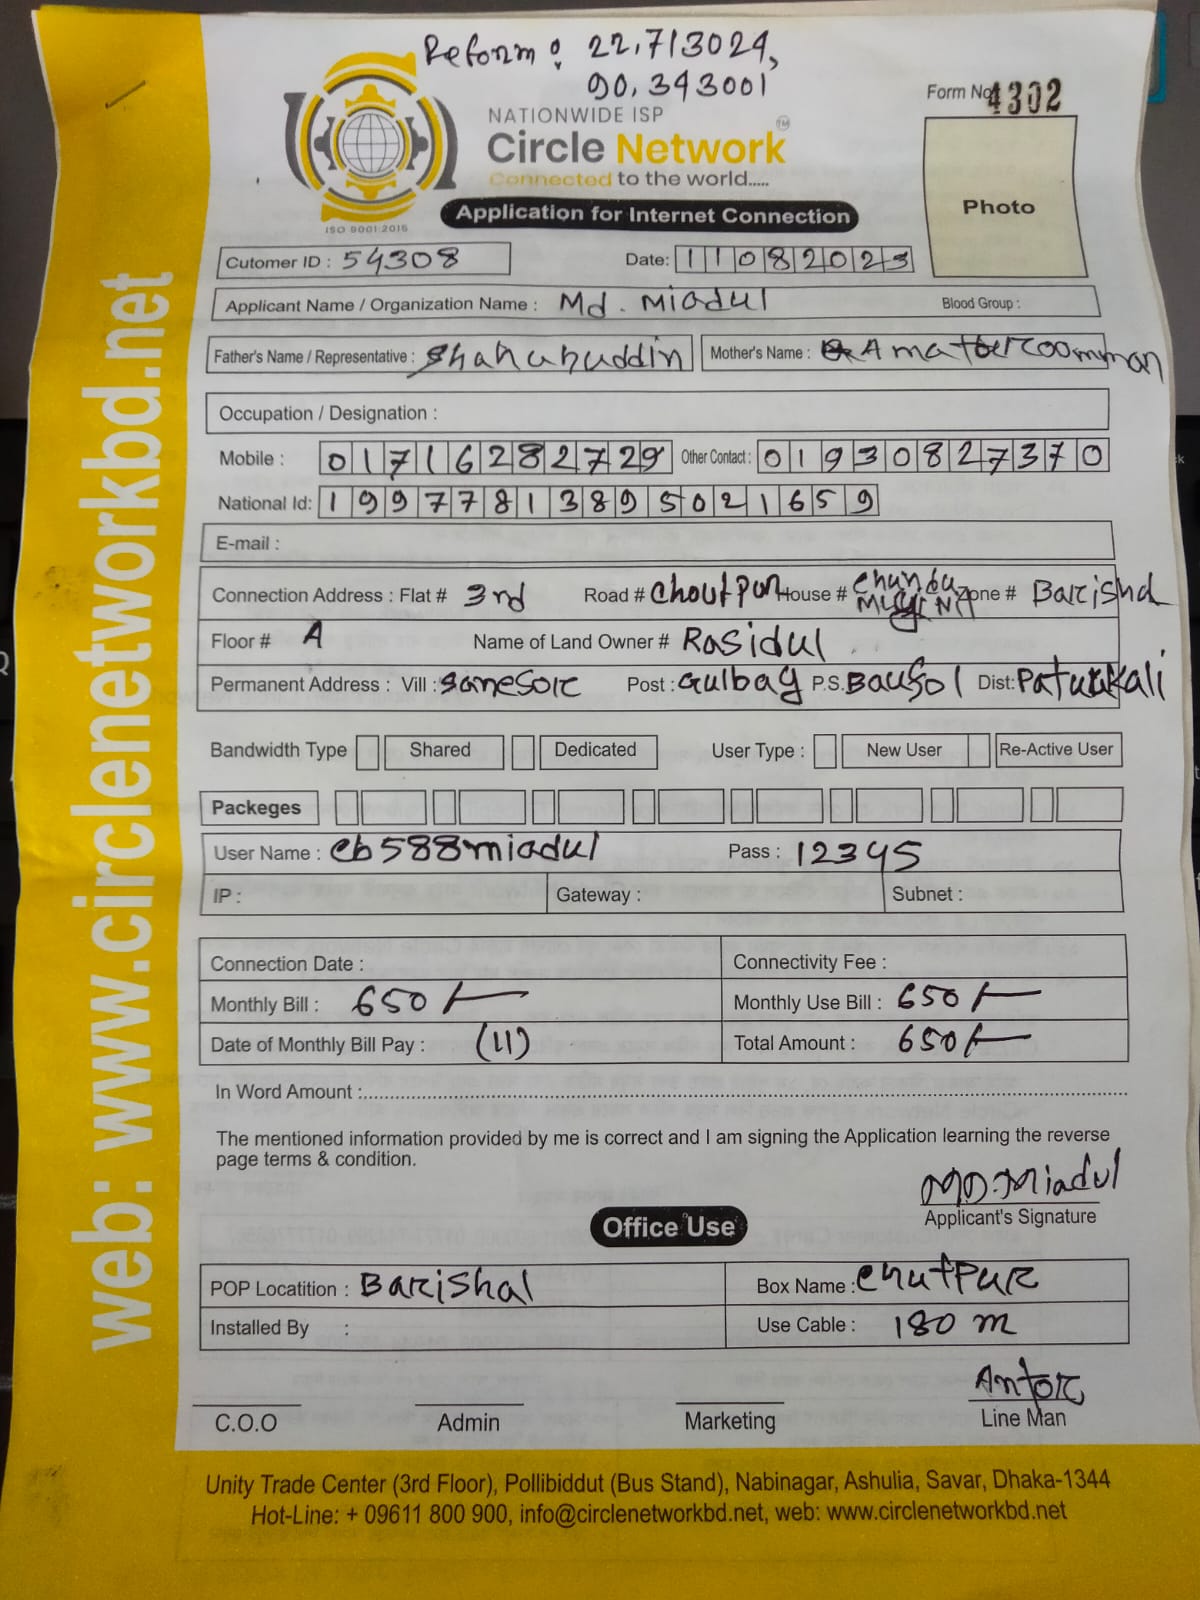 Reform: 22.713024,
90.343001
NATIONWIDE ISP
Circle Network TM
Connected to the world.....
ISO 9001:2015
Form No 4302
Photo
Application for Internet Connection
Cutomer ID : 54308 Date: 11082023
Applicant Name / Organization Name : Md. Miadul Blood Group :
Father's Name / Representative : Shahabuddin Mother's Name :
Occupation / Designation :
Mobile : 01716282729 Other Contact : 01930827370
National Id: 19977813895021659
E-mail :
Connection Address : Flat # 3rd Road # Choutpur House # Zone # Barishal
Floor # A Name of Land Owner # Rasidul
Permanent Address : Vill : Post : Gulbag P.S. Baufol Dist: Patuakali
Bandwidth Type Shared Dedicated User Type : New User Re-Active User
Packeges
User Name : cb588miadul Pass : 12345
IP : Gateway : Subnet :
Connection Date : Connectivity Fee :
Monthly Bill : 650/- Monthly Use Bill : 650/-
Date of Monthly Bill Pay : (11) Total Amount : 650/-
In Word Amount :
The mentioned information provided by me is correct and I am signing the Application learning the reverse
page terms & condition.
MD. Miadul
Applicant's Signature
Office Use
POP Locatition : Barishal Box Name : Chutpur
Installed By : Use Cable : 180 m
Antor
C.O.O Admin Marketing Line Man
Unity Trade Center (3rd Floor), Pollibiddut (Bus Stand), Nabinagar, Ashulia, Savar, Dhaka-1344
Hot-Line: + 09611 800 900, info@circlenetworkbd.net, web: www.circlenetworkbd.net
web: www.circlenetworkbd.net